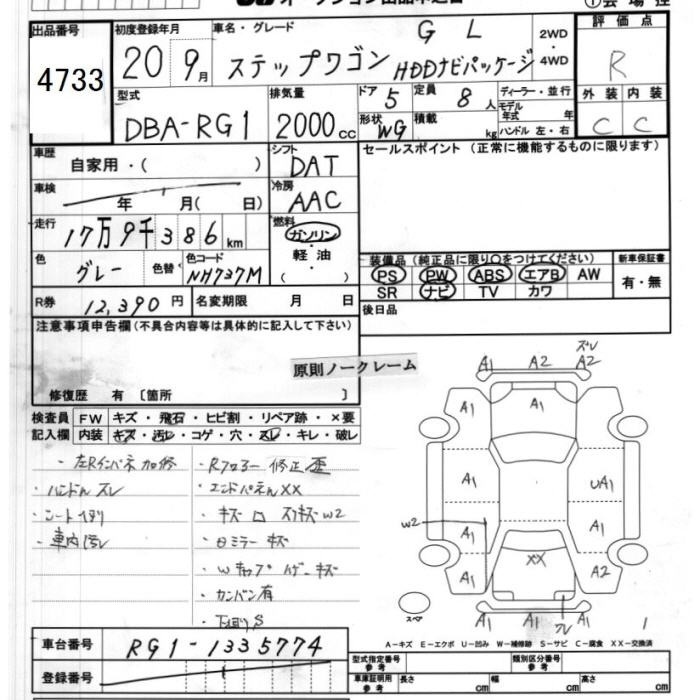 出品番号
4733
初度登録年月
20 9月
車名・グレード
GL
ステップワゴン HDDナビパッケージ
2WD
・
4WD
評価点
R
外装 内装
C C
型式
DBA-RG1
排気量
2000cc
ドア 5
定員 8人
形状 WG
積載 kg
ディーラー・並行
モデル年式 年
ハンドル 左・右
車歴
自家用・( )
シフト
DAT
セールスポイント (正常に機能するものに限ります)
車検
年 月( 日)
冷房
AAC
走行
17万9千386km
燃料
ガソリン
・
軽油
・
( )
色
グレー
色替
色コード
NH737M
装備品(純正品に限り○をつけてください)
PS PW ABS エアB AW
SR ナビ TV カワ
新車保証書
有・無
R券 12,390円
名変期限 月 日
後日品
注意事項申告欄(不具合内容等は具体的に記入して下さい)
原則ノークレーム
修復歴 有 〔箇所 〕
検査員
記入欄
FW キズ・飛石・ヒビ割・リペア跡・×要
内装 キズ・汚レ・コゲ・穴・スレ・キレ・破レ
・左Rインパネ加修
・ハンドルスレ
・シートイタリ
・車内汚レ
・Rフロアー修正歪
・エンドパネルXX
・キズ ロ スリキズW2
・ロミラーキズ
・カンバン有
・下回りS
ズレ
A1 A2 A2
A1 A1
A1 UA1
W2
A1 A1
A1 XX A2
スペア
A1 A1 A1
フレ
A-キズ E-エクボ U-凹み W-補修跡 S-サビ C-腐食 XX-交換済
車台番号
RG1-1335774
登録番号
型式指定番号
参考
類別区分番号
参考
車庫証明用
参考
長さ cm 幅 cm 高さ cm